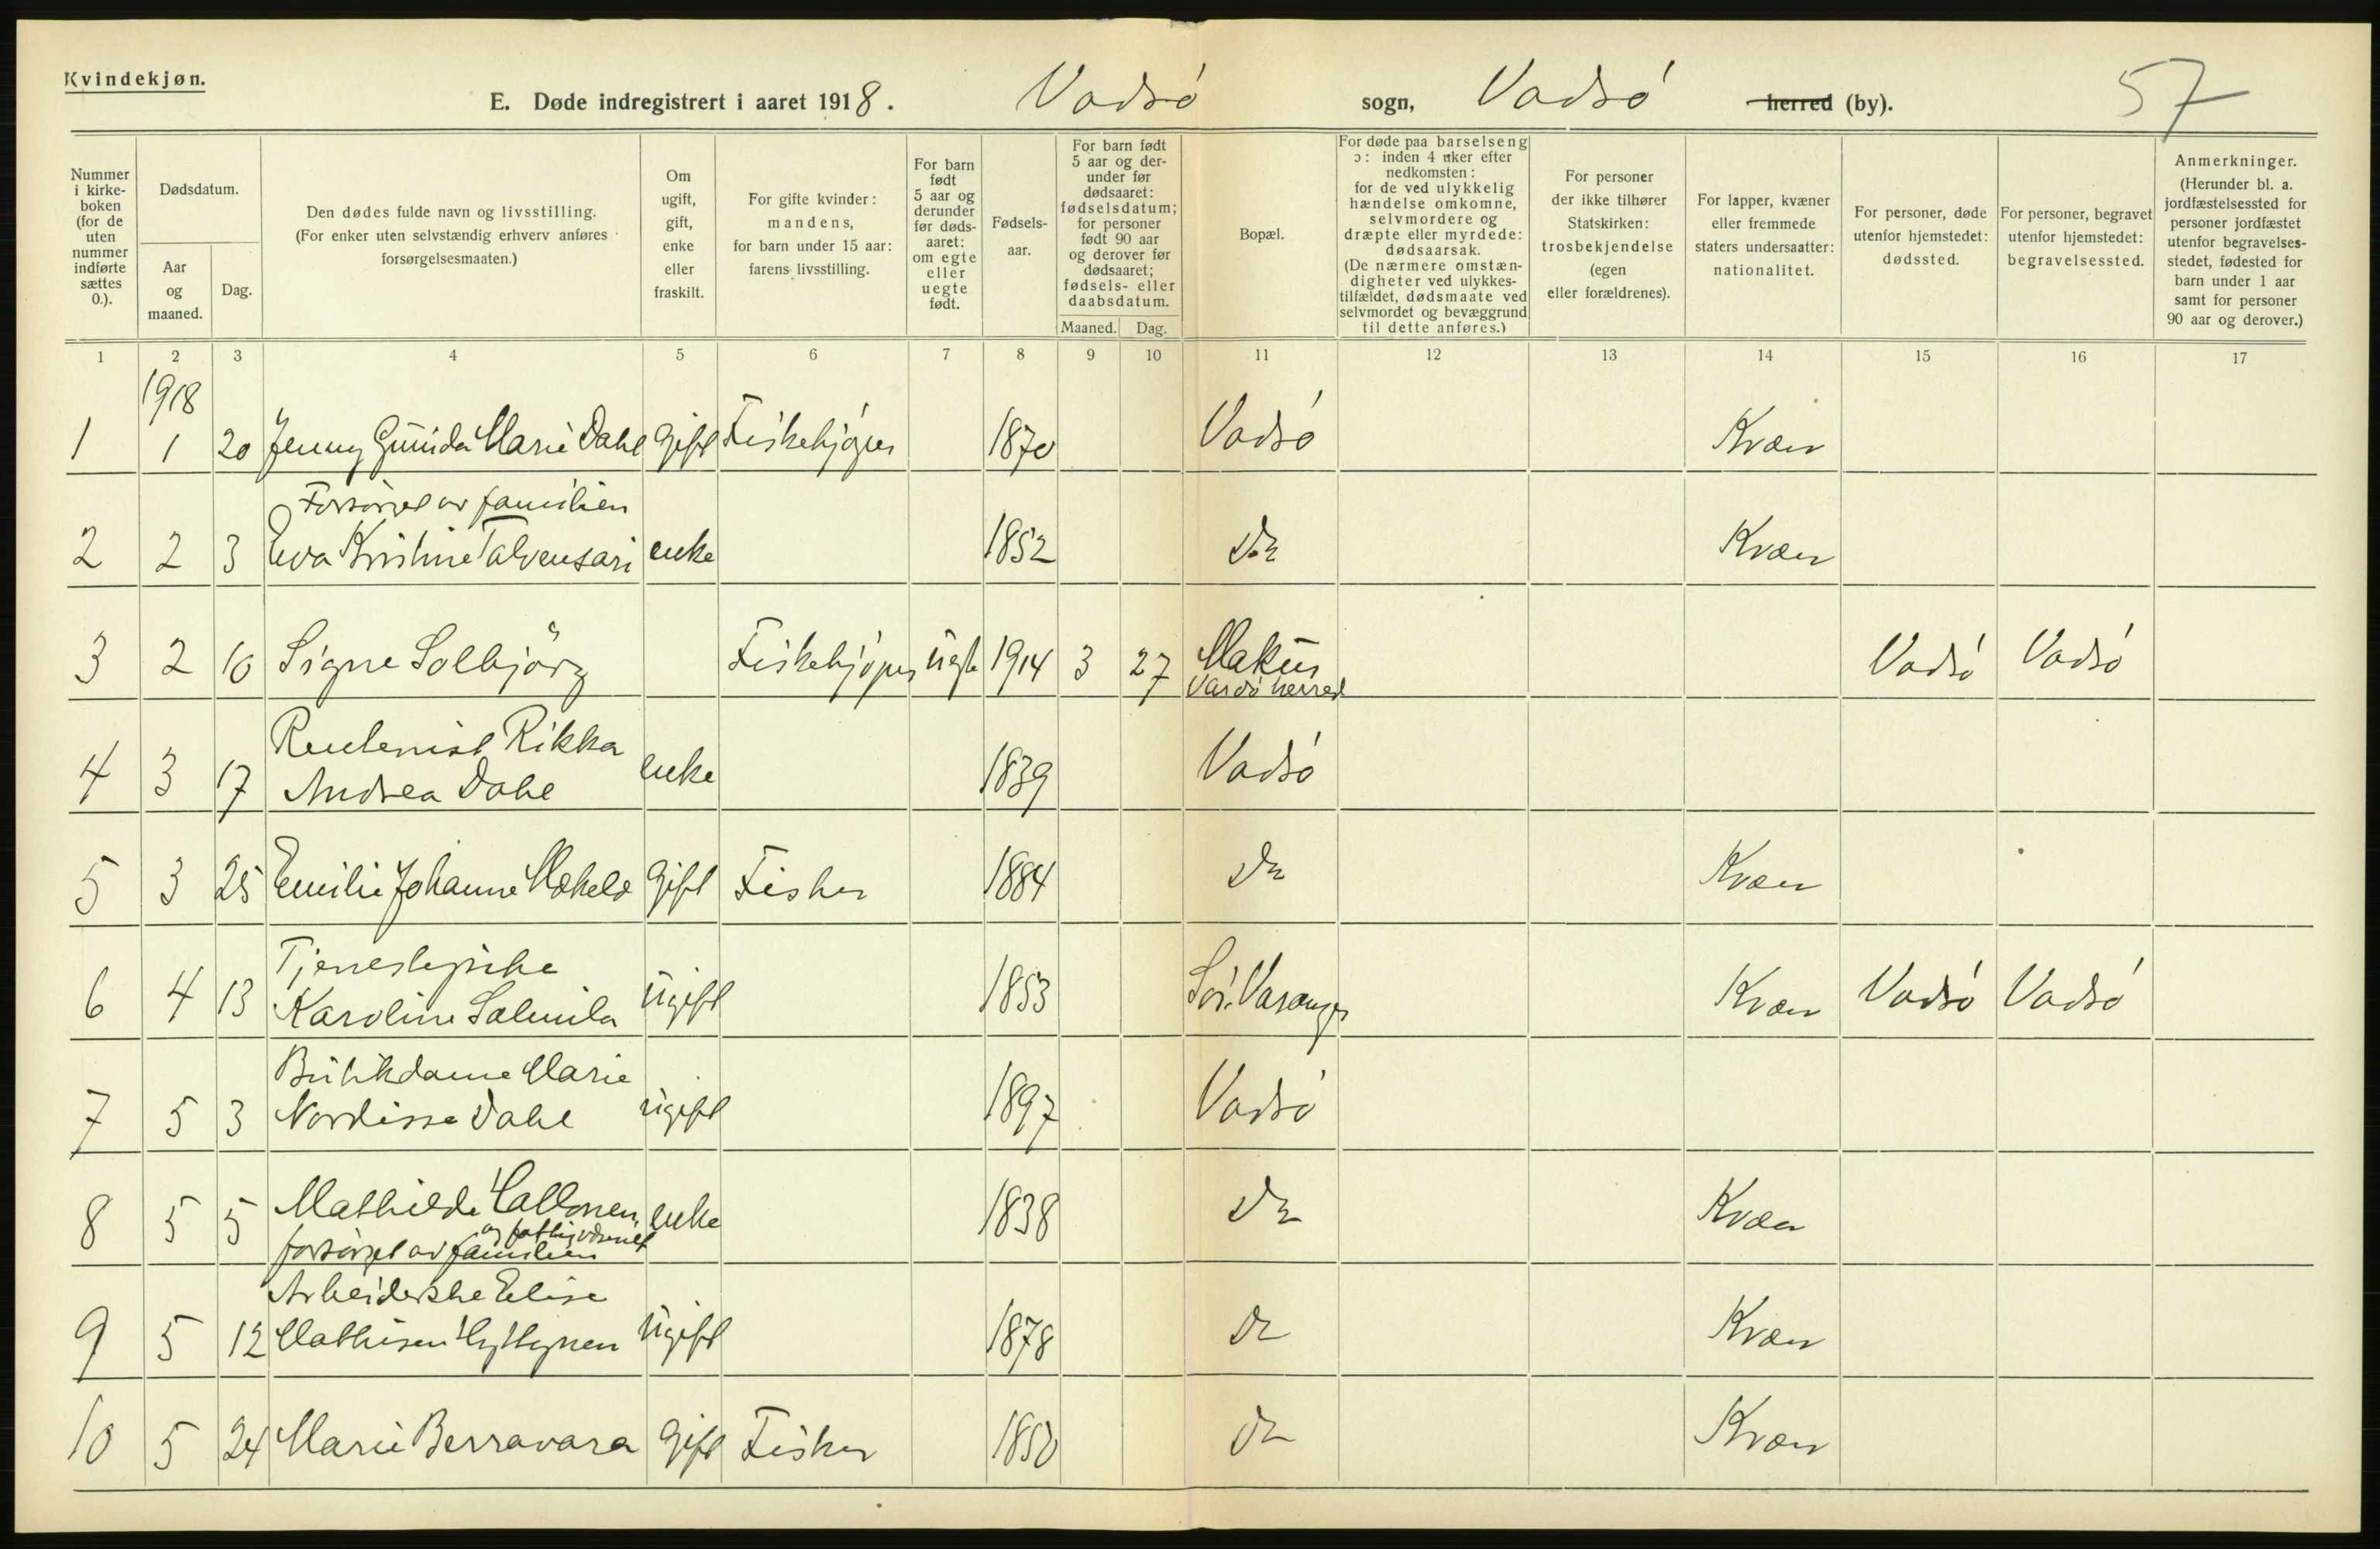 Kvindekjøn.
E. Døde indregistrert i aaret 1918. Vadsø sogn, Vadsø herred (by). 57
Nummer i kirke-boken (for de uten nummer indførte sættes 0.).
Dødsdatum.
Aar og maaned.
Dag.
Den dødes fulde navn og livsstilling.
(For enker uten selvstændig erhverv anføres forsørgelsesmaaten.)
Om ugift, gift, enke eller fraskilt.
For gifte kvinder: mandens, for barn under 15 aar: farens livsstilling.
For barn født 5 aar og derunder før døds-aaret: om egte eller uegte født.
Fødsels-aar.
For barn født 5 aar og der-under før dødsaaret: fødselsdatum; for personer født 90 aar og derover før dødsaaret; fødsels- eller daabsdatum.
Maaned. Dag.
Bopæl.
For døde paa barselseng ɔ: inden 4 uker efter nedkomsten: for de ved ulykkelig hændelse omkomne, selvmordere og dræpte eller myrdede: dødsaarsak. (De nærmere omstæn-digheter ved ulykkes-tilfældet, dødsmaate ved selvmordet og bevæggrund til dette anføres.)
For personer der ikke tilhører Statskirken: trosbekjendelse (egen eller forældrenes).
For lapper, kvæner eller fremmede staters undersaatter: nationalitet.
For personer, døde utenfor hjemstedet: dødssted.
For personer, begravet utenfor hjemstedet: begravelsessted.
Anmerkninger. (Herunder bl. a. jordfæstelsessted for personer jordfæstet utenfor begravelses-stedet, fødested for barn under 1 aar samt for personer 90 aar og derover.)
1 2 3 4 5 6 7 8 9 10 11 12 13 14 15 16 17
1918
1 1 20 Jenny Gunda Marie Dahl gift Fiskekjøper 1870 Vadsø Kvæn
Forsørget av familien
2 2 3 Eva Kristine Talvensari enke 1852 do Kvæn
3 2 10 Signe Solbjörg Fiskekjøper uegte 1914 3 27 Makur Vadsø Vadsø
Vardø herred
Rentenist Rikka
4 3 17 Andrea Dahl enke 1839 Vadsø
5 3 25 Emilie Johanne Mækelæ gift Fisker 1884 do Kvæn
Tjenestepike
6 4 13 Karoline Salmila ugift 1853 Sør-Varanger Kvæn Vadsø Vadsø
Butikdame Marie
7 5 3 Nordisse Dahl ugift 1897 Vadsø
8 5 5 Mathilde enke 1838 do Kvæn
og fattigvæsenet
forsørget av familien
Arbeiderske Elise
9 5 12 Mathisen Hyttynen ugift 1878 do Kvæn
10 5 24 Marie Berravara gift Fisker 1850 do Kvæn